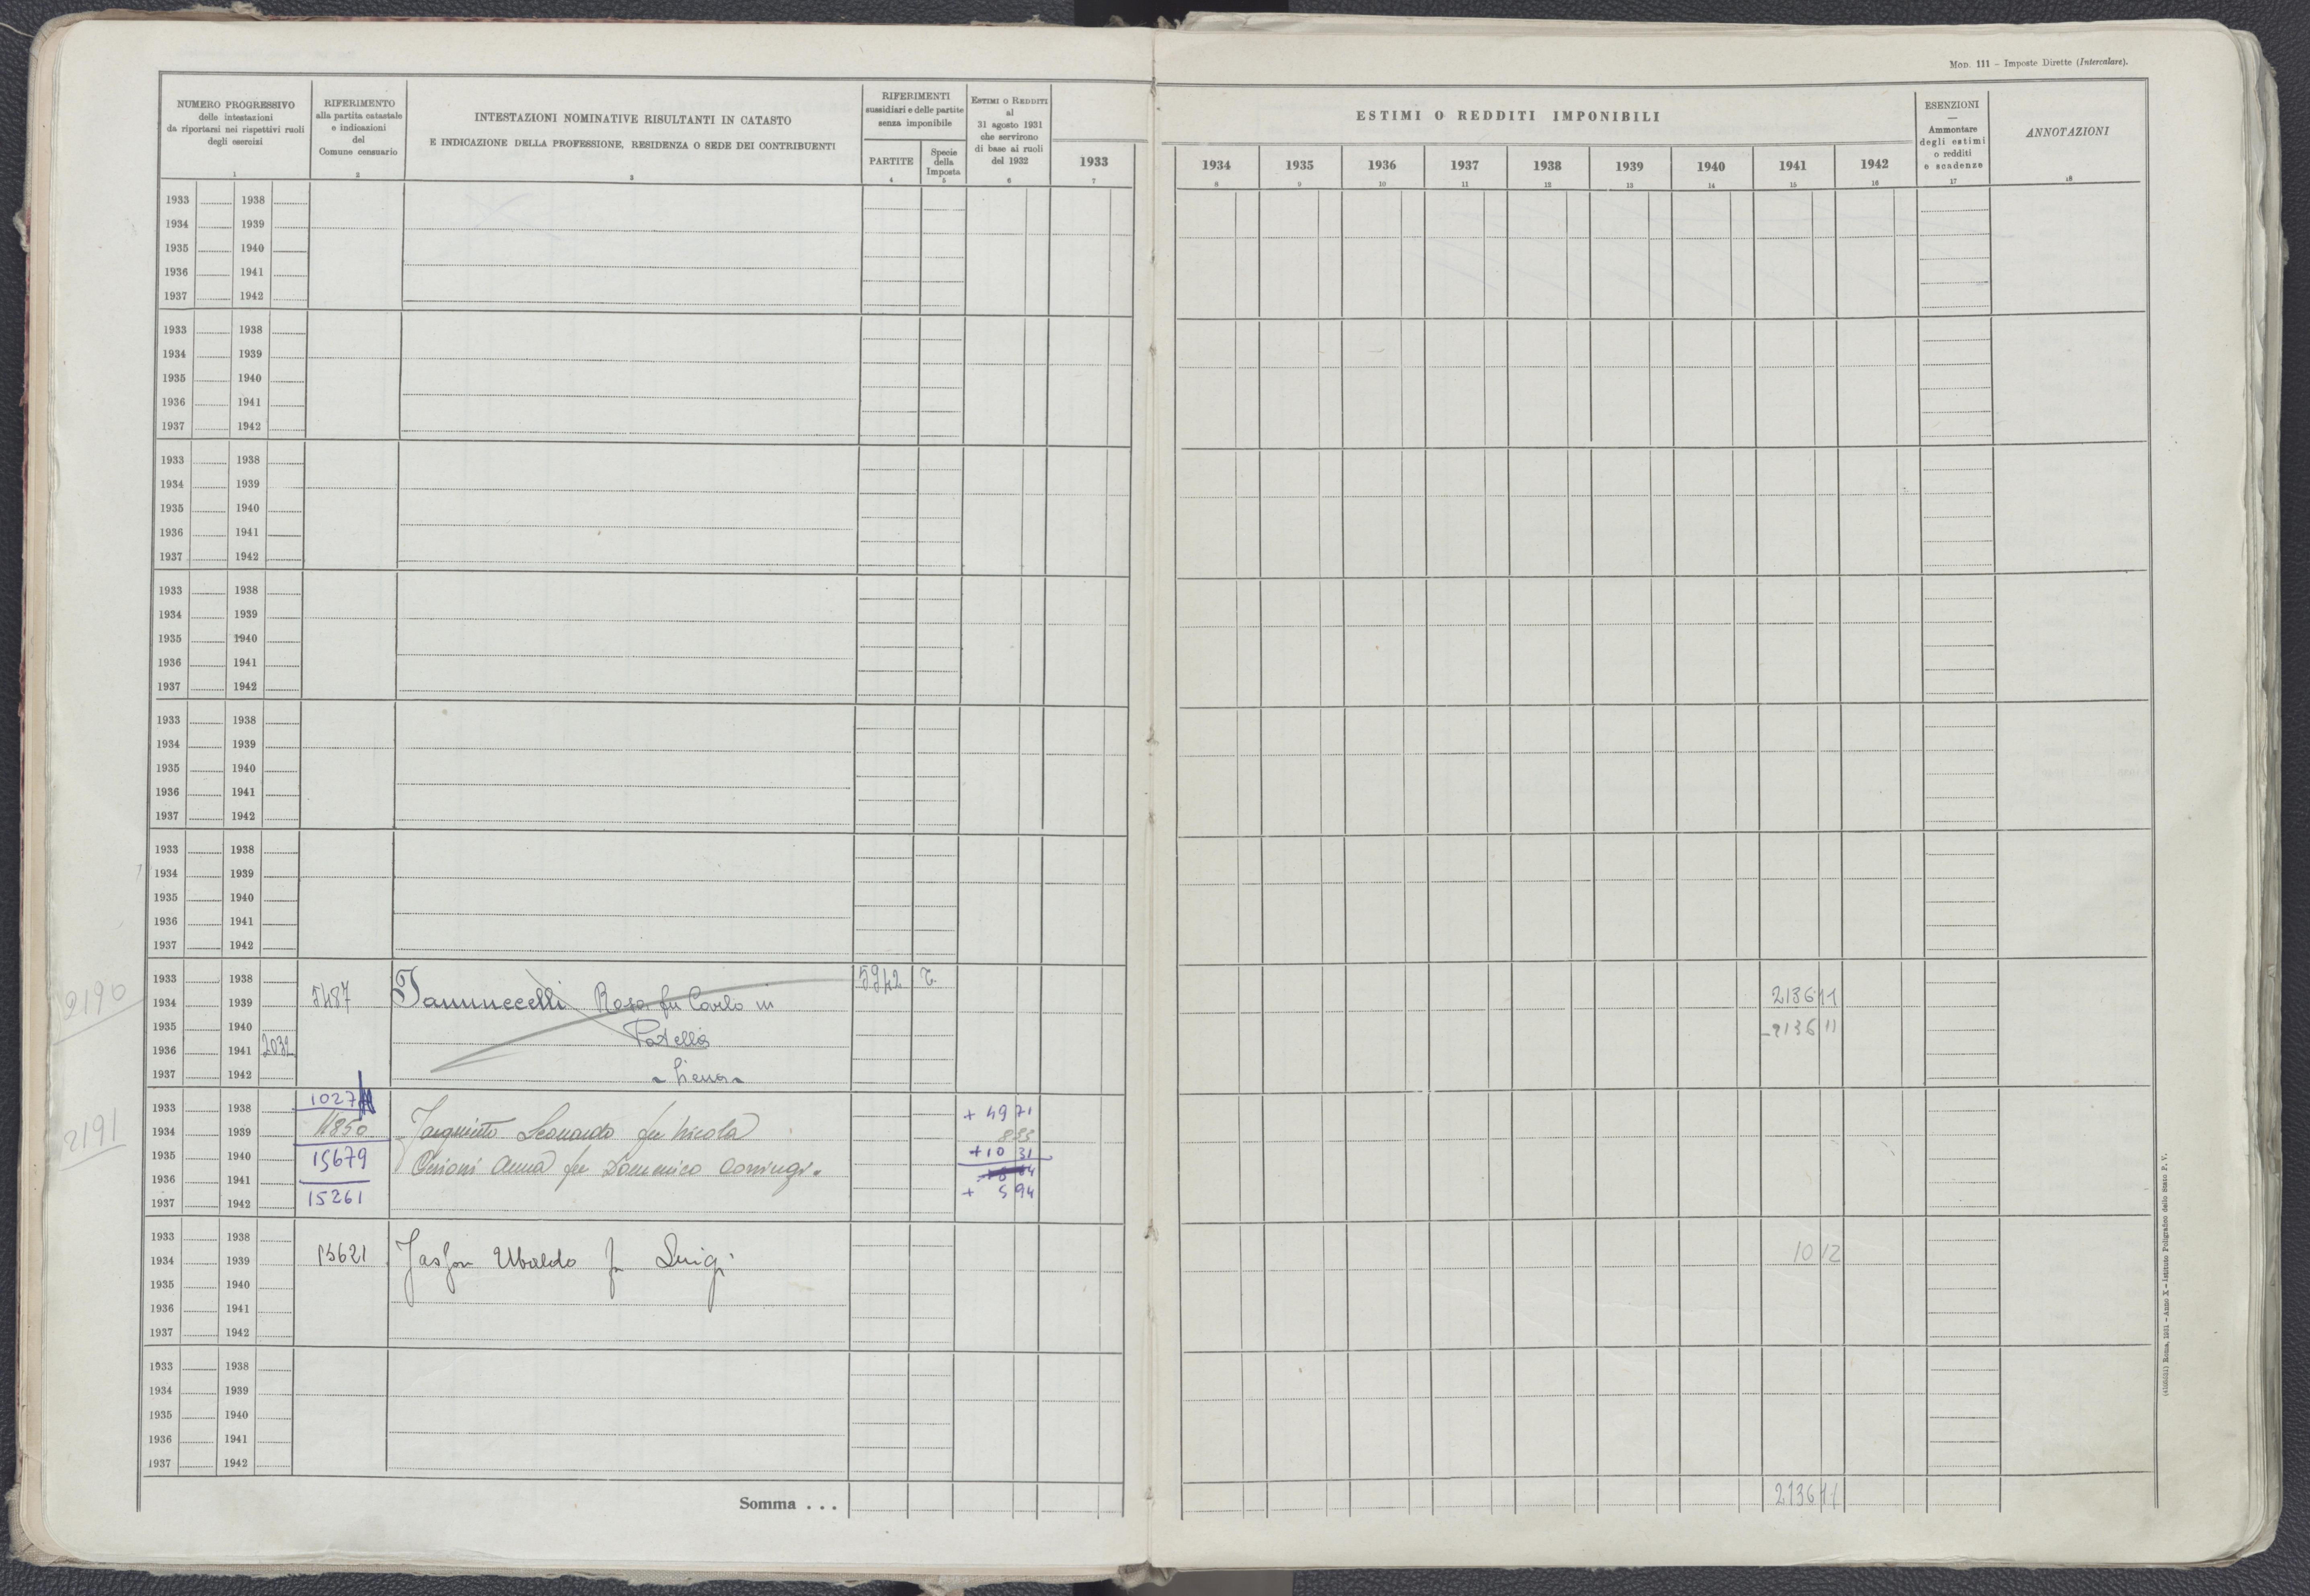 MOD. 111 – Imposte Dirette (Intercalare).
NUMERO PROGRESSIVO
delle intestazioni
da riportarsi nei rispettivi ruoli
degli esercizi
1
RIFERIMENTO
alla partita catastale
e indicazioni
del
Comune censuario
2
INTESTAZIONI NOMINATIVE RISULTANTI IN CATASTO
E INDICAZIONE DELLA PROFESSIONE, RESIDENZA O SEDE DEI CONTRIBUENTI
3
RIFERIMENTI
sussidiari e delle partite
senza imponibile
PARTITE
4
Specie
della
Imposta
5
ESTIMI O REDDITI
al
31 agosto 1931
che servirono
di base ai ruoli
del 1932
6
ESTIMI O REDDITI IMPONIBILI
1933
7
1934
8
1935
9
1936
10
1937
11
1938
12
1939
13
1940
14
1941
15
1942
16
ESENZIONI
—
Ammontare
degli estimi
o redditi
e scadenze
17
ANNOTAZIONI
18
1933 1938
1934 1939
1935 1940
1936 1941
1937 1942
1933 1938
1934 1939
1935 1940
1936 1941
1937 1942
1933 1938
1934 1939
1935 1940
1936 1941
1937 1942
1933 1938
1934 1939
1935 1940
1936 1941
1937 1942
1933 1938
1934 1939
1935 1940
1936 1941
1937 1942
1933 1938
1934 1939
1935 1940
1936 1941
1937 1942
2190
1933 1938 5942
1934 1939 5487 Rosa fu Carlo in 2136 11
1935 1940 Patella -2136 11
1936 1941 2032
1937 1942
1027
1933 1938 + 49 71
2191
1934 1939 11850 Leonardo fu Nicola 833
1935 1940 15679 Anna fu Domenico coniugi. +10 31
1936 1941
1937 1942 15261 + 5 94
1933 1938
1934 1939 15621 Ubaldo fu Luigi 10 12
1935 1940
1936 1941
1937 1942
1933 1938
1934 1939
1935 1940
1936 1941
1937 1942
Somma . . . 2136 11
Roma, 1931 – Anno X – Istituto Poligrafico dello Stato P. V.